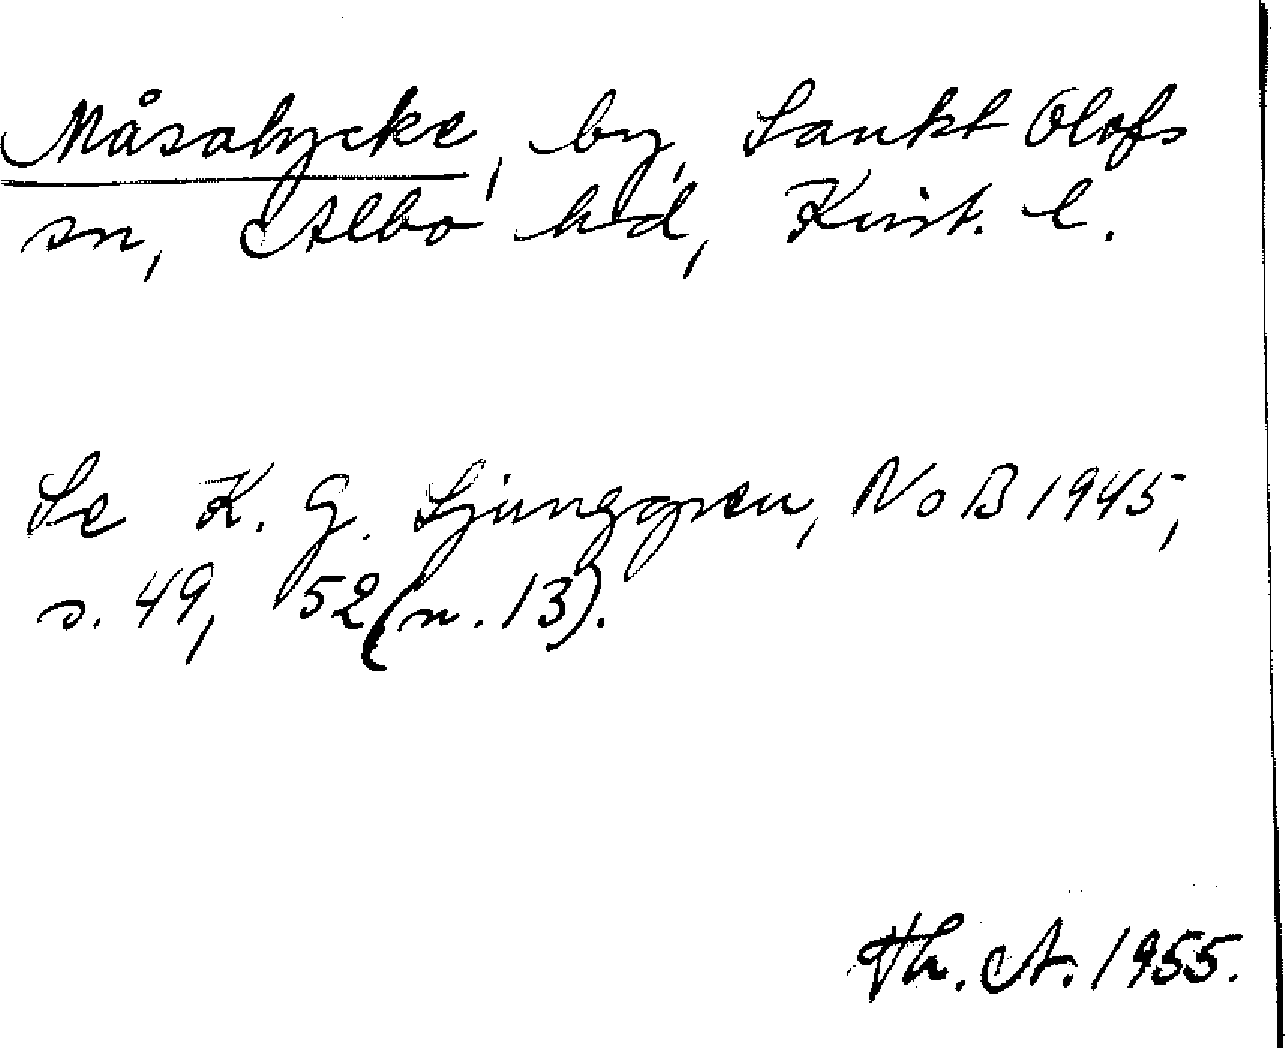 Måsalycke, by, Sankt Olofs
sn, Albo hd, Krist. l.
Se K. G. Ljunggren, NoB 1945,
s. 49, 52 (n. 13).
Th. A. 1955.